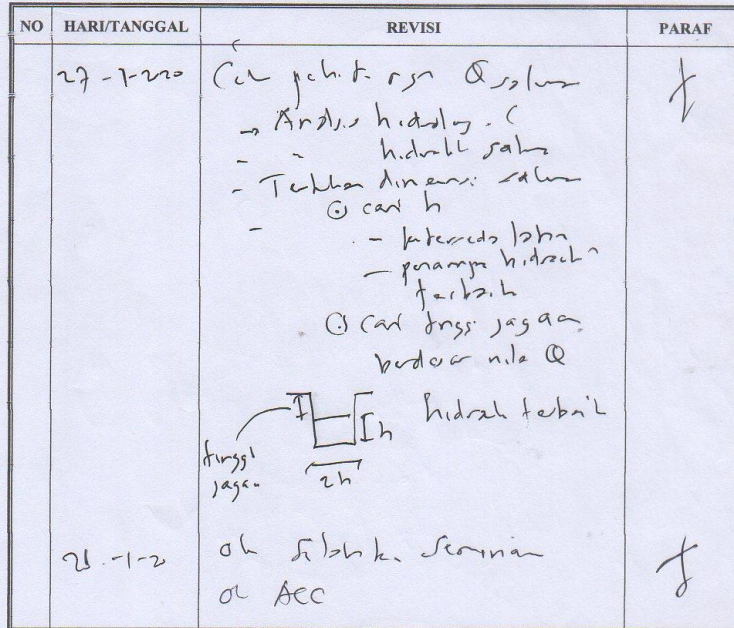 NO HARI/TANGGAL REVISI PARAF
27-1-220 Cek Q saluran
→ Analisis hidrologi
- " hidrolik saluran
- dimensi saluran
⊙ cari h
- lahan
- penampang hidrolik
terbaik
⊙ cari tinggi jagaan
berdasar nilai Q
hidrolik terbaik
h
tinggi
jagaan
2h
-1-20 ok Silahkan Seminar
ok ACC